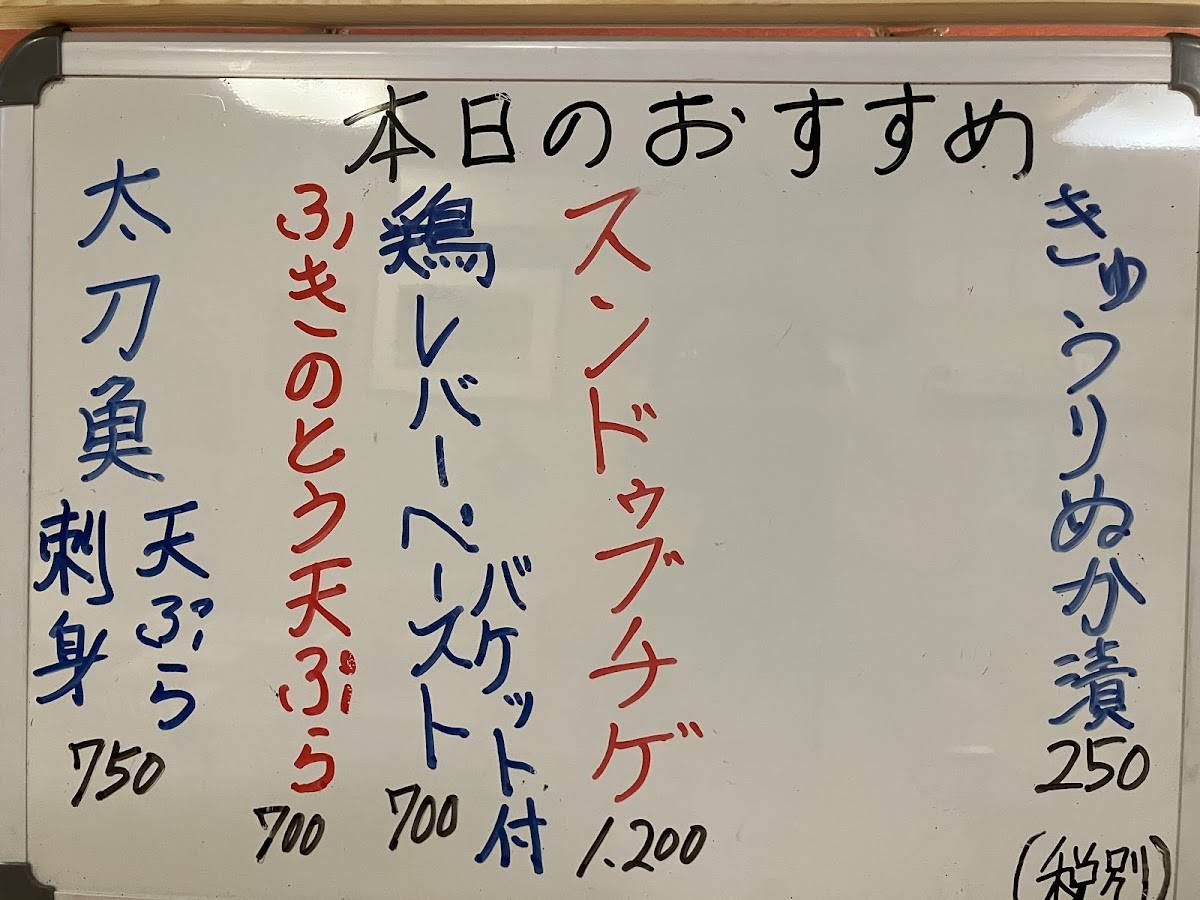 本日のおすすめ
きゅうりぬか漬
250
(税別)
スンドゥブチゲ
1.200
鶏レバーペースト
バケット付
700
ふきのとう天ぷら
700
太刀魚
天ぷら
刺身
750